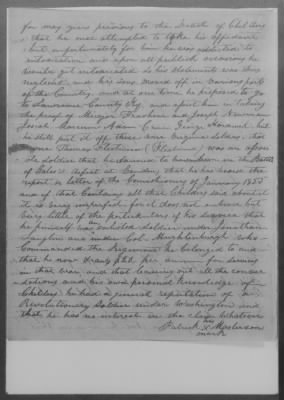 for many years previous to the Death of Childers
that he once attempted to make his affidavit
but unfortunately for him he was addicted to
intoxication and upon all publick occasions he
would get intoxicated & his Statements was thus
neglected and his Sons moved off in various parts
of the Country, and at one time he proposed to go
to Lawrence County Ky. and assist him in taking
the proof of and Joseph Newman
Josiah Marcum Adam Crum George Hammond but
he Still put it off these were Virginia Soldiers, that
one Thomas was an
old Soldier that he claimed to have known in the Battle
of Gates defeat at Camden, that he has heard the
report & letter of the Commissioner of January 1855
and if that Contains all that Childers said about
it is very imperfect for it does not embrace but
very little of the particulars of his service that
he himself was an enlisted Soldier under Jonathan
Langdon and under Col. Muhlenburgh who
Commanded the Regiment he belonged to and
that he now draws $80 per annum for serving
in that war and that leaving out all the conver
sations and his own personal knowledge of
Childers he had a general reputation of a
Revolutionary Soldier under Washington and
that he has no interest in the claim whatever
Patrick his x Masterson
mark